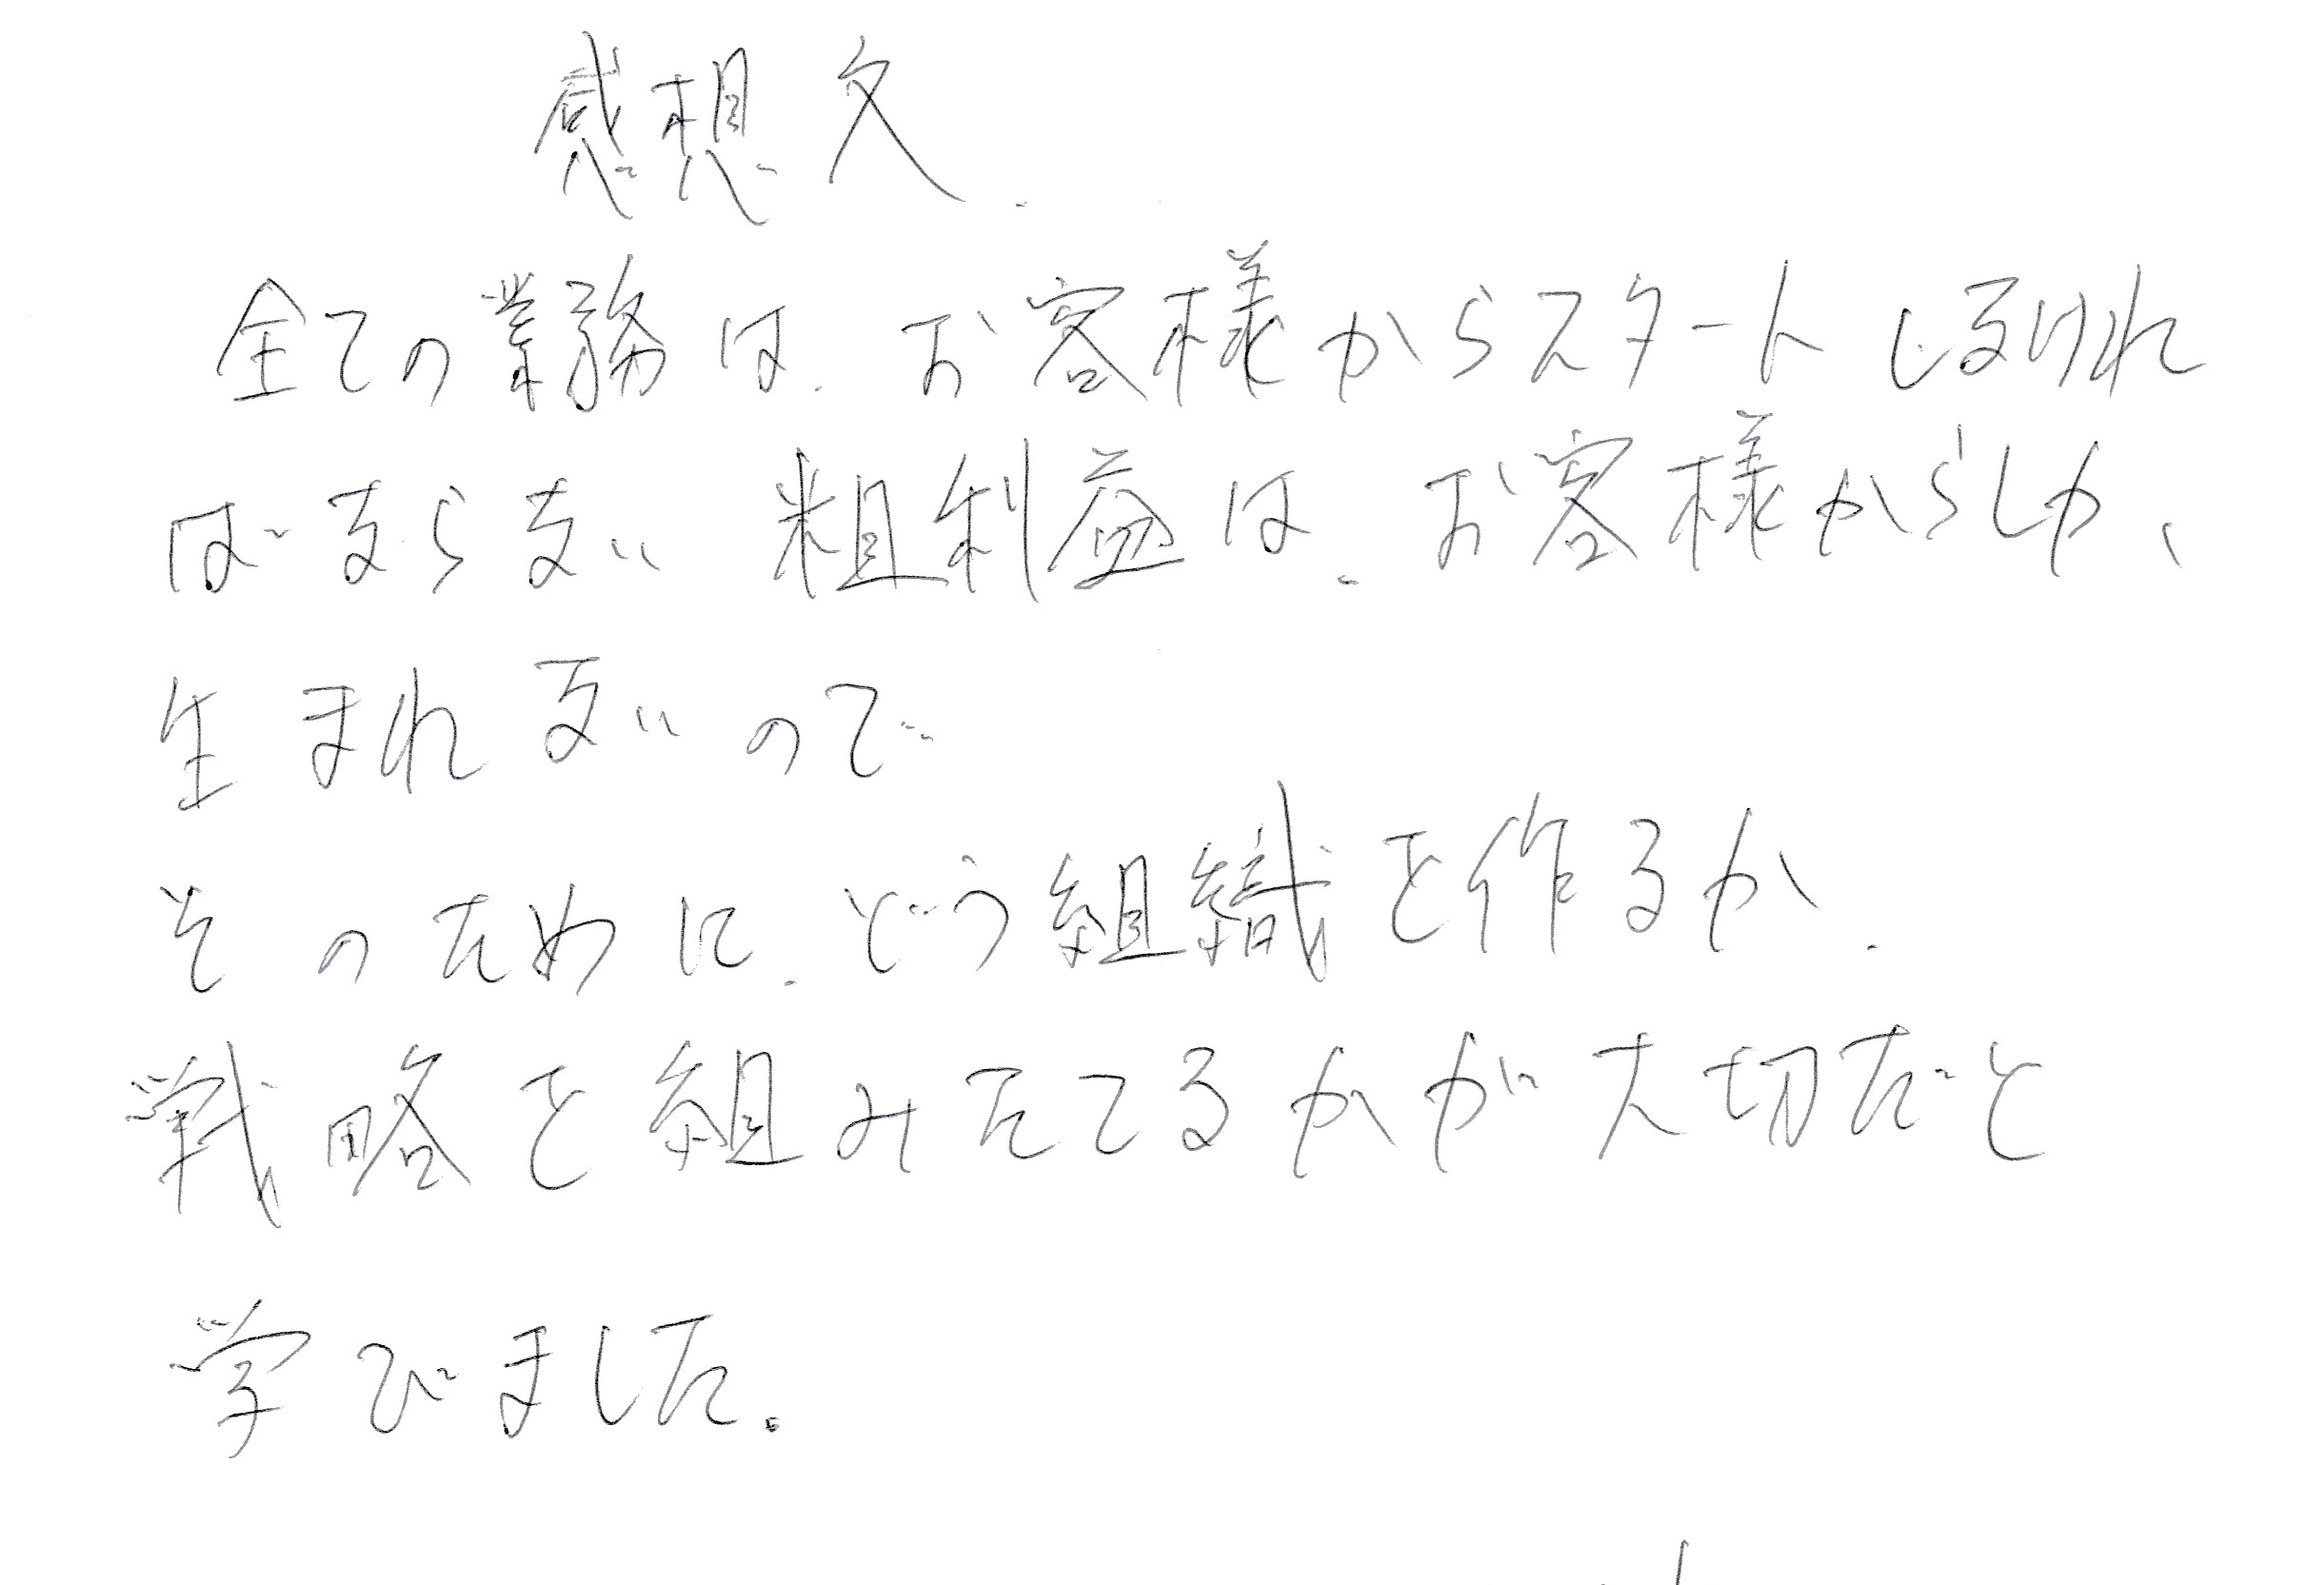 感想文.
全ての業務は、お客様からスタートしなけれ
ばならない 粗利益は、お客様からしか、
生まれないので
そのために、どう組織を作るか、
戦略を組みたてるかが大切だと
学びました。